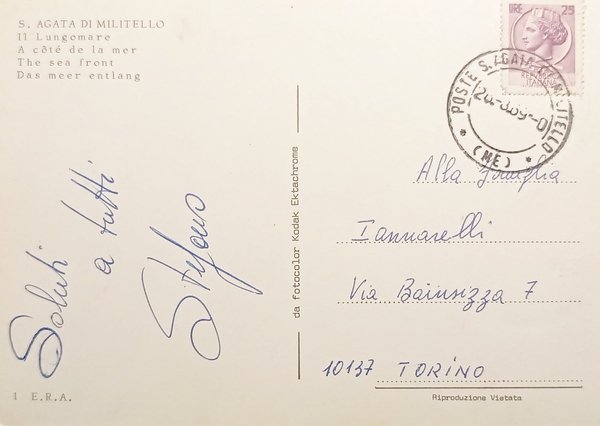 S. AGATA DI MILITELLO
Il Lungomare
A côté de la mer
The sea front
Das meer entlang
Saluti
a tutti
Stefano
1 E.R.A.
da fotocolor Kodak Ektachrome
LIRE 25
REPUBBLICA
ITALIANA
POSTE S. AGATA MILITELLO
* (ME) *
Alla famiglia
Iannarelli
Via Bainsizza 7
10137 TORINO
Riproduzione Vietata